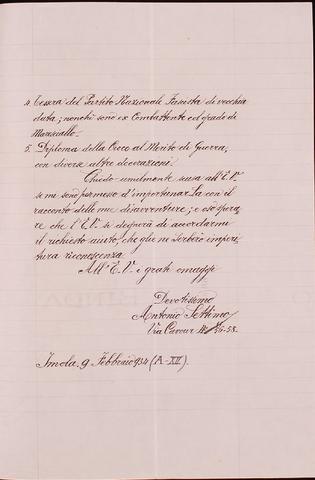 4. Tessera del Partito Nazionale Fascista di vecchia
data; nonchè sono ex Combattente col grado di
Maresciallo.
5. Diploma della Croce al Merito di Guerra,
con diverse altre decorazioni.
Chiedo umilmente scusa all'E.V.
se mi sono permesso d'importunarLa con il
racconto delle mie disavventure; e oso spera
re che l'E.V. si degnerà di accordarmi
il richiesto aiuto, che glie ne serberò imperi
tura riconoscenza.
All'E.V. i grati omaggi
Devotissimo
Antonio Settimo
Via Cavour 58.
Imola, 9 Febbraio 934 (A-XII).